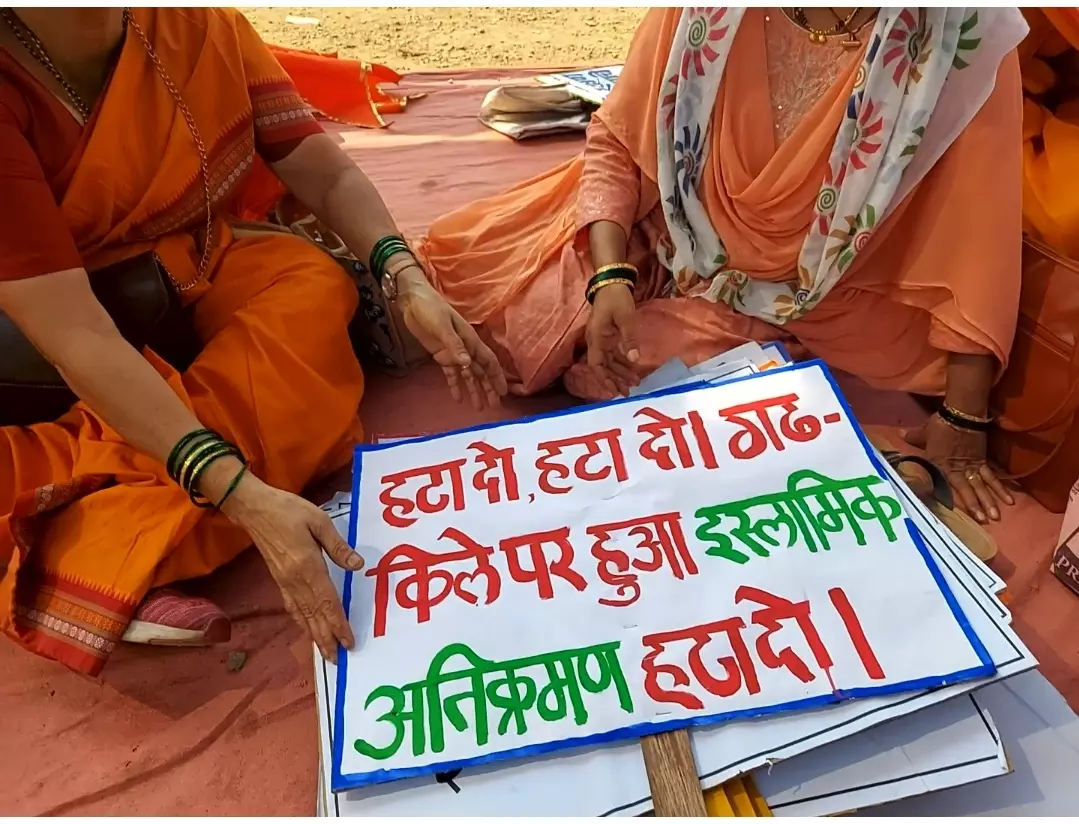 हटा दो, हटा दो। गढ-
किले पर हुआ इस्लामिक
अतिक्रमण हटा दो।